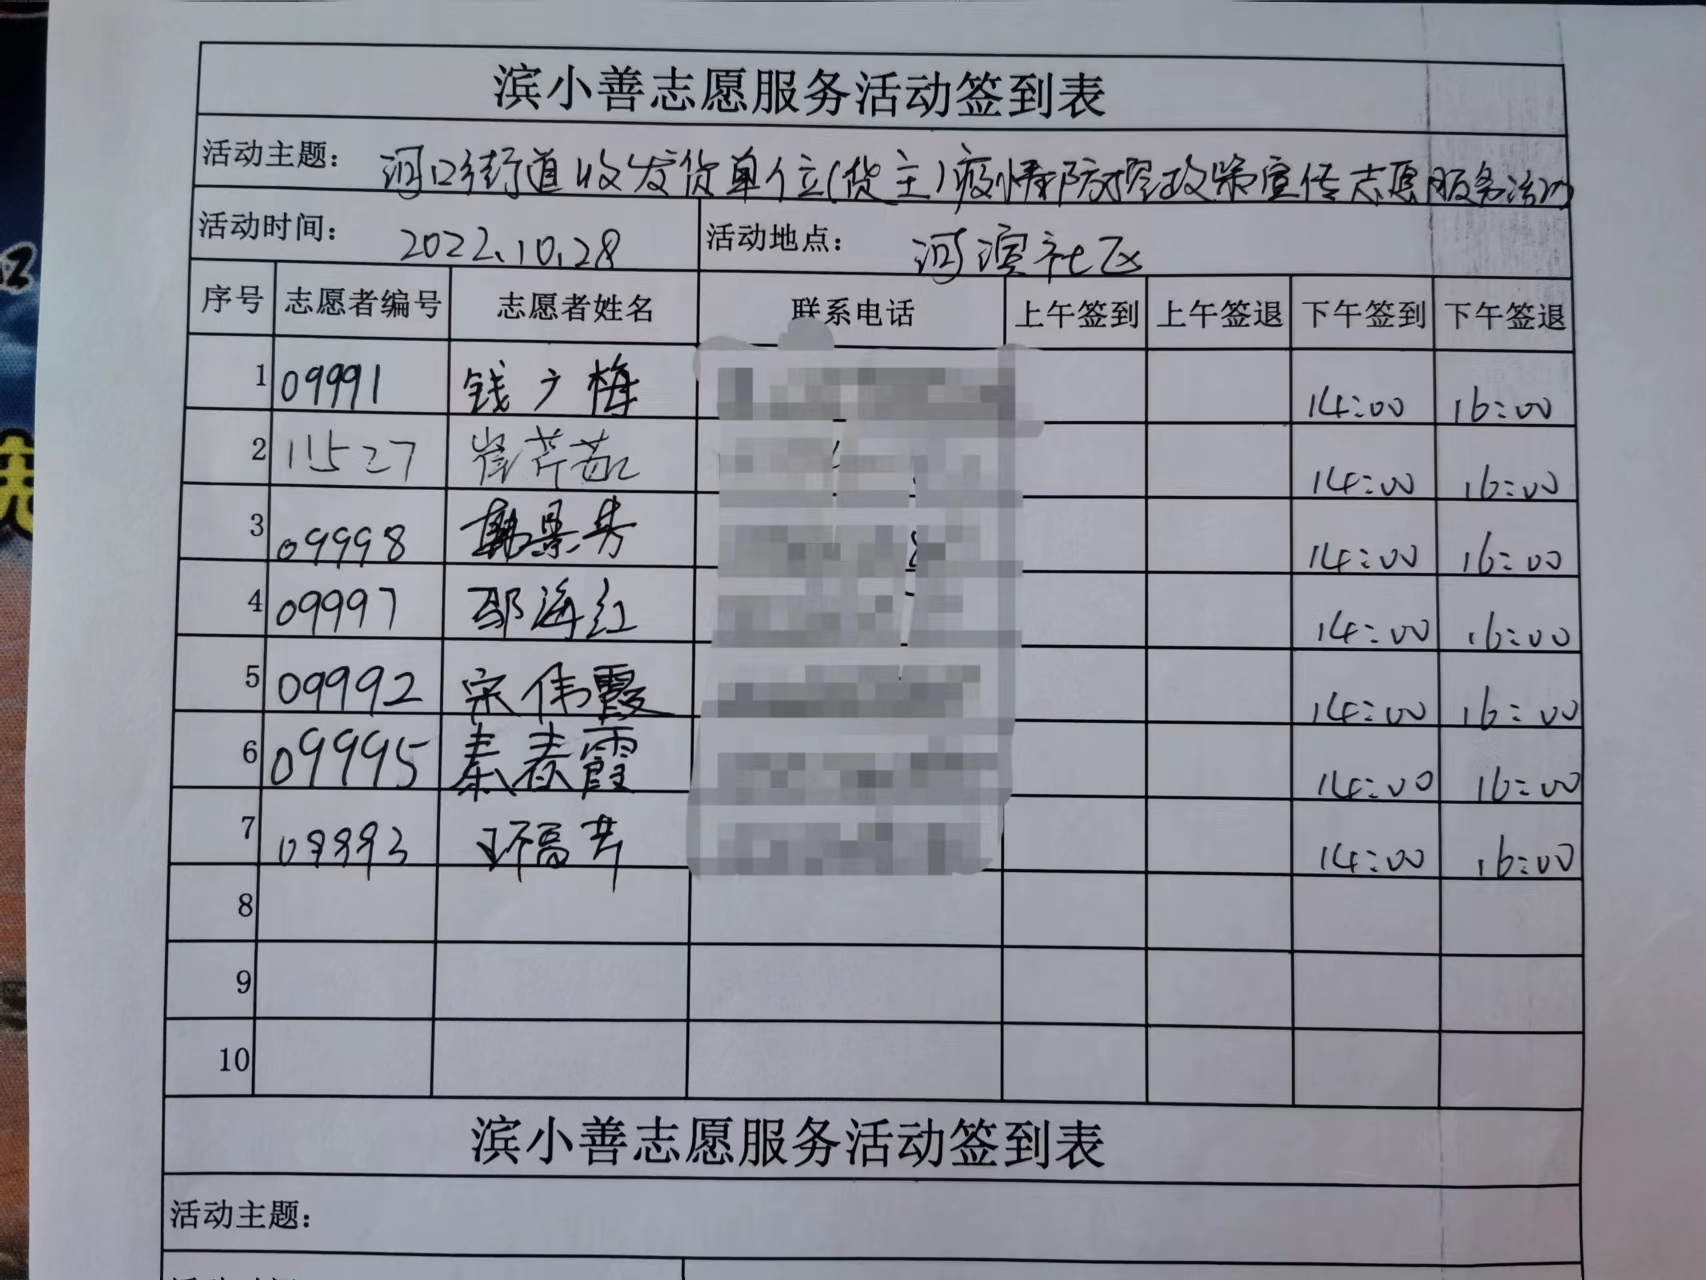 滨小善志愿服务活动签到表
活动主题： 河口街道收发货单位(货主)疫情防控政策宣传志愿服务活动
活动时间： 2022.10.28 活动地点： 河滨社区
序号 志愿者编号 志愿者姓名 联系电话 上午签到 上午签退 下午签到 下午签退
1 09991 钱广梅 14:00 16:00
2 11527 崔芹茹 14:00 16:00
3 09998 韩景芳 14:00 16:00
4 09997 邵海红 14:00 16:00
5 09992 宋伟霞 14:00 16:00
6 09995 秦春霞 14:00 16:00
7 09993 14:00 16:00
8
9
10
滨小善志愿服务活动签到表
活动主题：